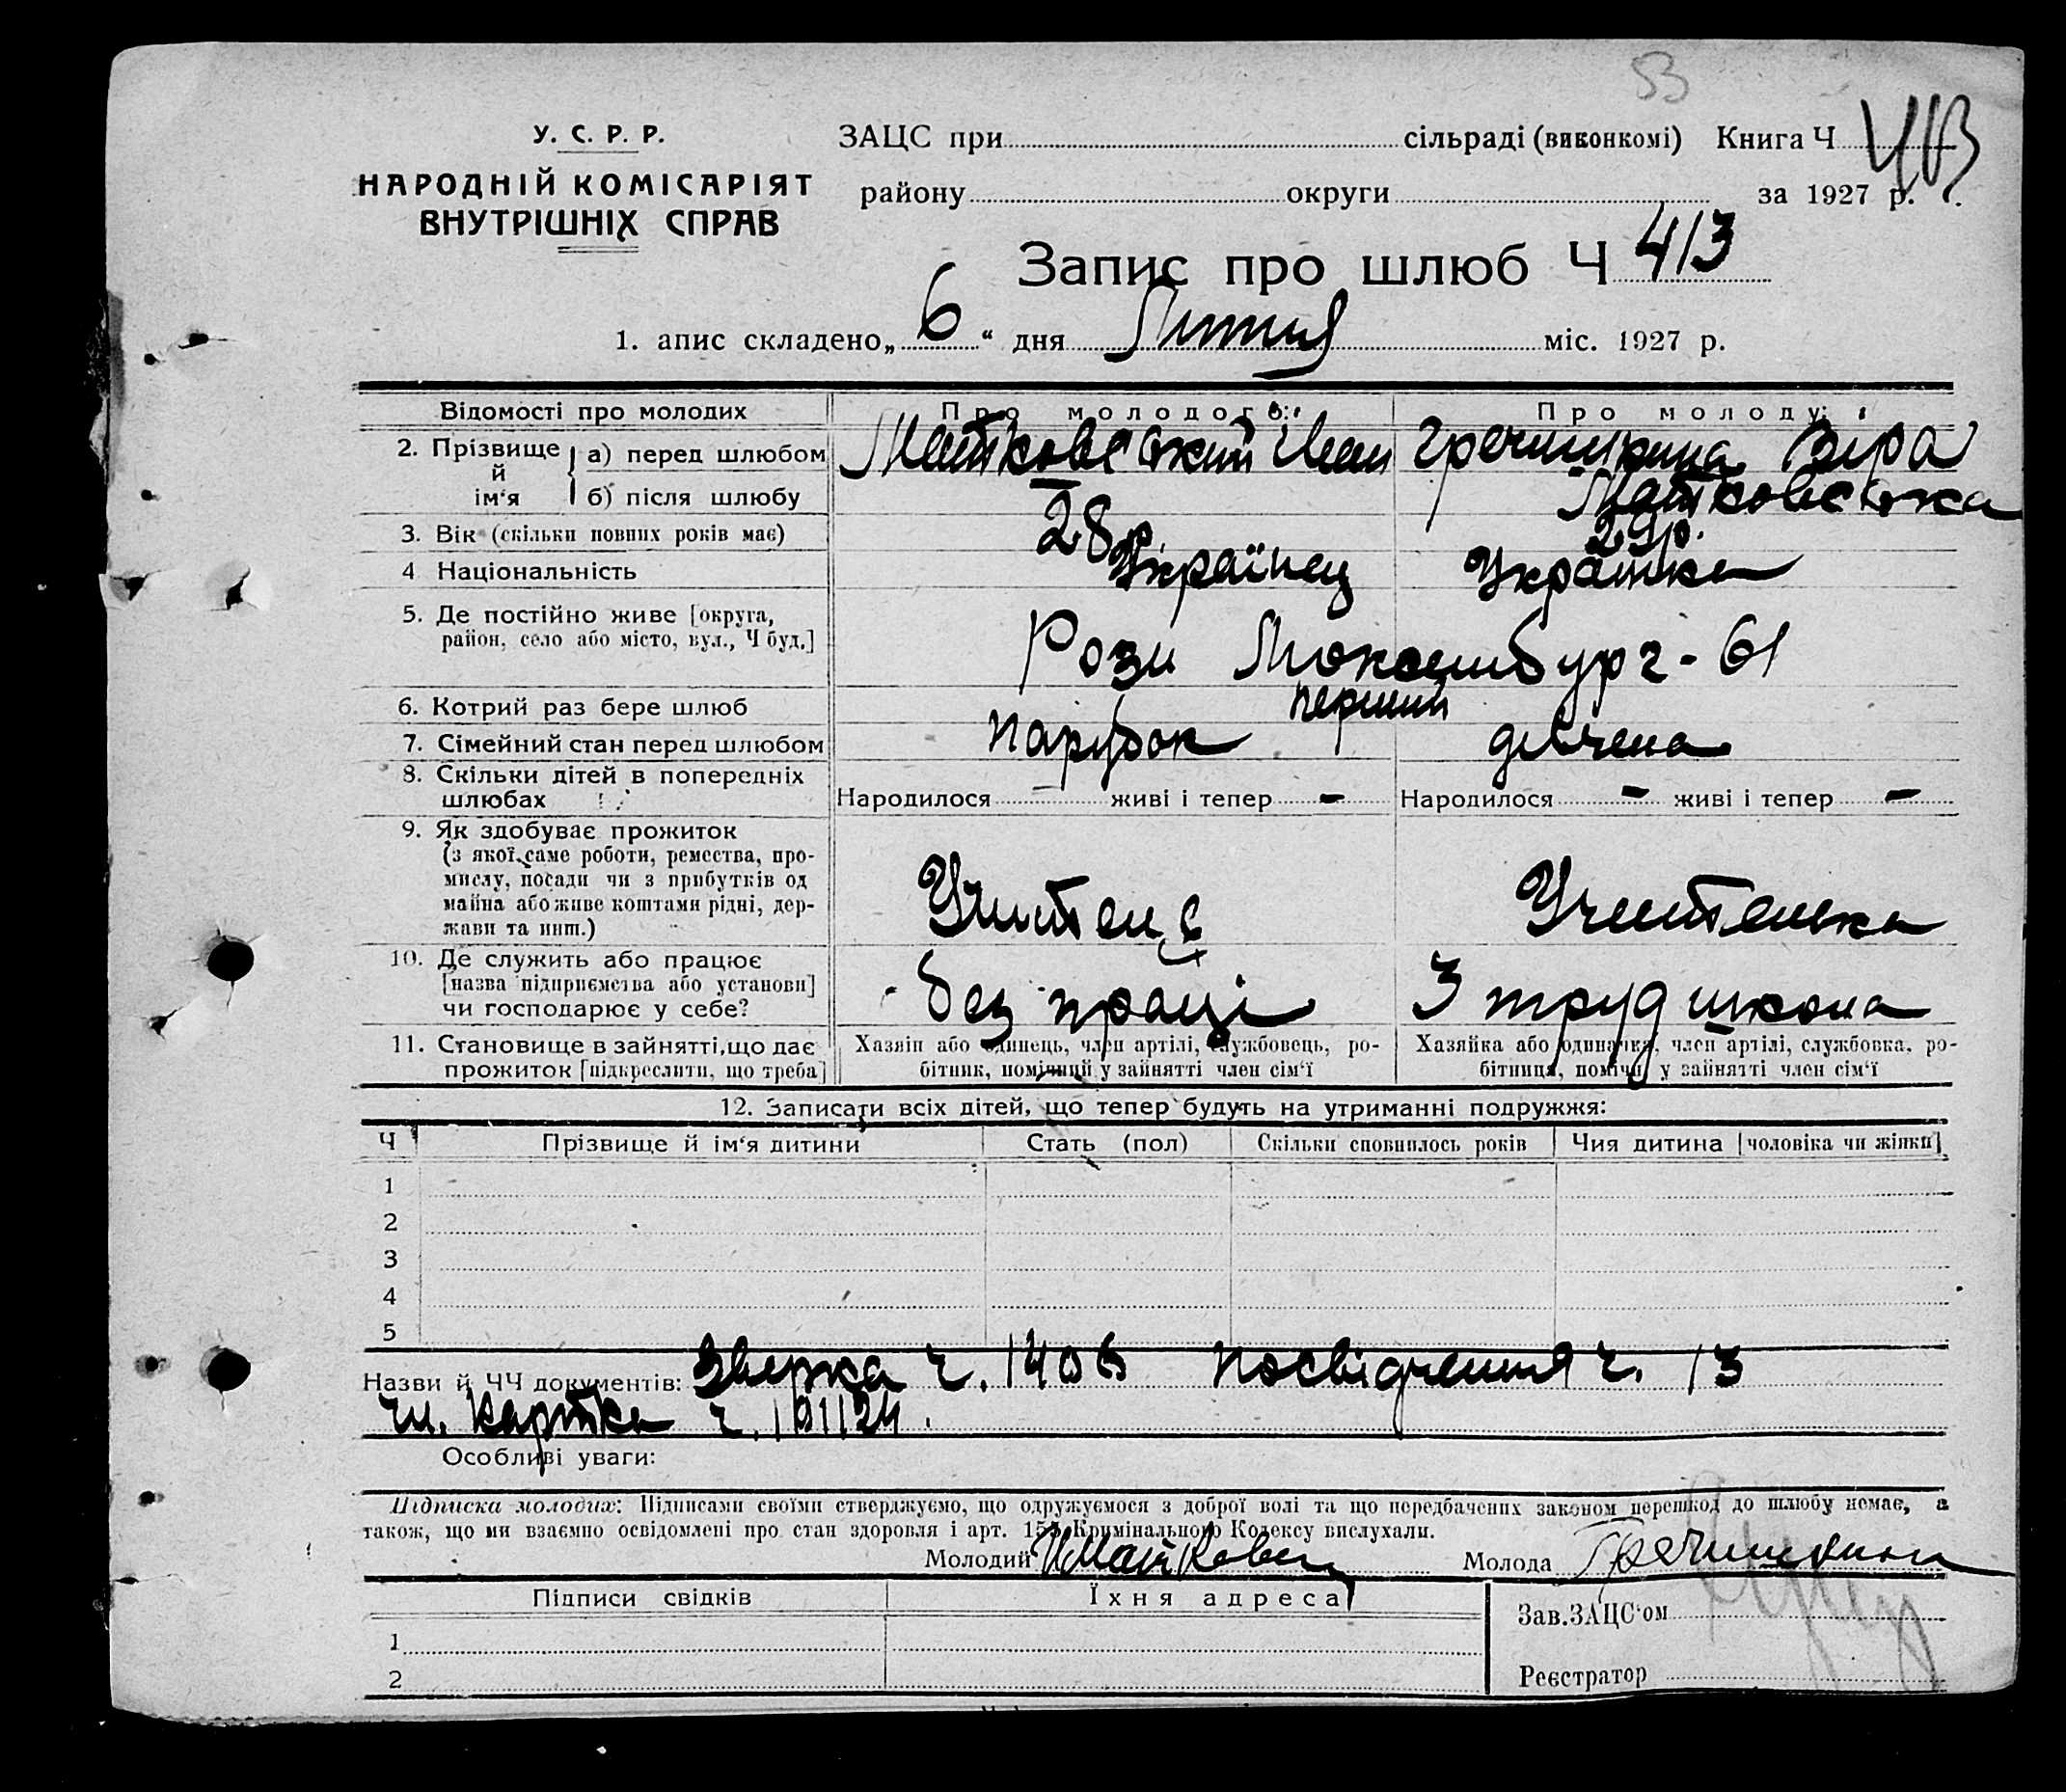 53
У. С. Р. Р.
НАРОДНІЙ КОМІСАРІЯТ
ВНУТРІШНІХ СПРАВ
ЗАЦС при сільраді (виконкомі) Книга Ч
району округи за 1927 р.
Запис про шлюб Ч 413
1. апис складено „6“ дня міс. 1927 р.
Відомості про молодих Про молодого: Про молоду:
2. Прізвище й ім‘я а) перед шлюбом Матковський Іван Гречишкина Віра
б) після шлюбу Матковська
3. Вік (скільки повних років має) 28р. 29р.
4 Національність Українец Українка
5. Де постійно живе [округа,
район, село або місто, вул., Ч буд.] Рози Люксембург - 61
6. Котрий раз бере шлюб перший
7. Сімейний стан перед шлюбом парубок дівчена
8. Скільки дітей в попередніх
шлюбах Народилося — живі і тепер — Народилося — живі і тепер —
9. Як здобуває прожиток
(з якої саме роботи, ремества, про-
мислу, посади чи з прибутків од
майна або живе коштами рідні, дер-
жави та инш.) Учитель Учителька
10. Де служить або працює
[назва підприємства або установи]
чи господарює у себе? без праці 3 труд школа
11. Становище в зайнятті, що дає
прожиток [підкреслити, що треба]
Хазяїн або одинець, член артілі, службовець, ро-
бітник, помічний у зайнятті член сім‘ї
Хазяйка або одиначка, член артілі, службовка, ро-
бітниця, помічн. у зайнятті член сім‘ї
12. Записати всіх дітей, що тепер будуть на утриманні подружжя:
Ч Прізвище й ім‘я дитини Стать (пол) Скільки сповнилось років Чия дитина [чоловіка чи жінки]
1
2
3
4
5
Назви й ЧЧ документів: ч. 1406 посвідчення ч. 13
чл. картка ч. 101124.
Особливі уваги:
Підписка молодих: Підписами своїми стверджуємо, що одружуємося з доброї волі та що передбачених законом перешкод до шлюбу немає, а
також, що ми взаємно освідомлені про стан здоровля і арт. 155 Кримінального Кодексу вислухали.
Молодий Молода Гречишкина
Підписи свідків Їхня адреса Зав. ЗАЦС‘ом
1
2 Реєстратор